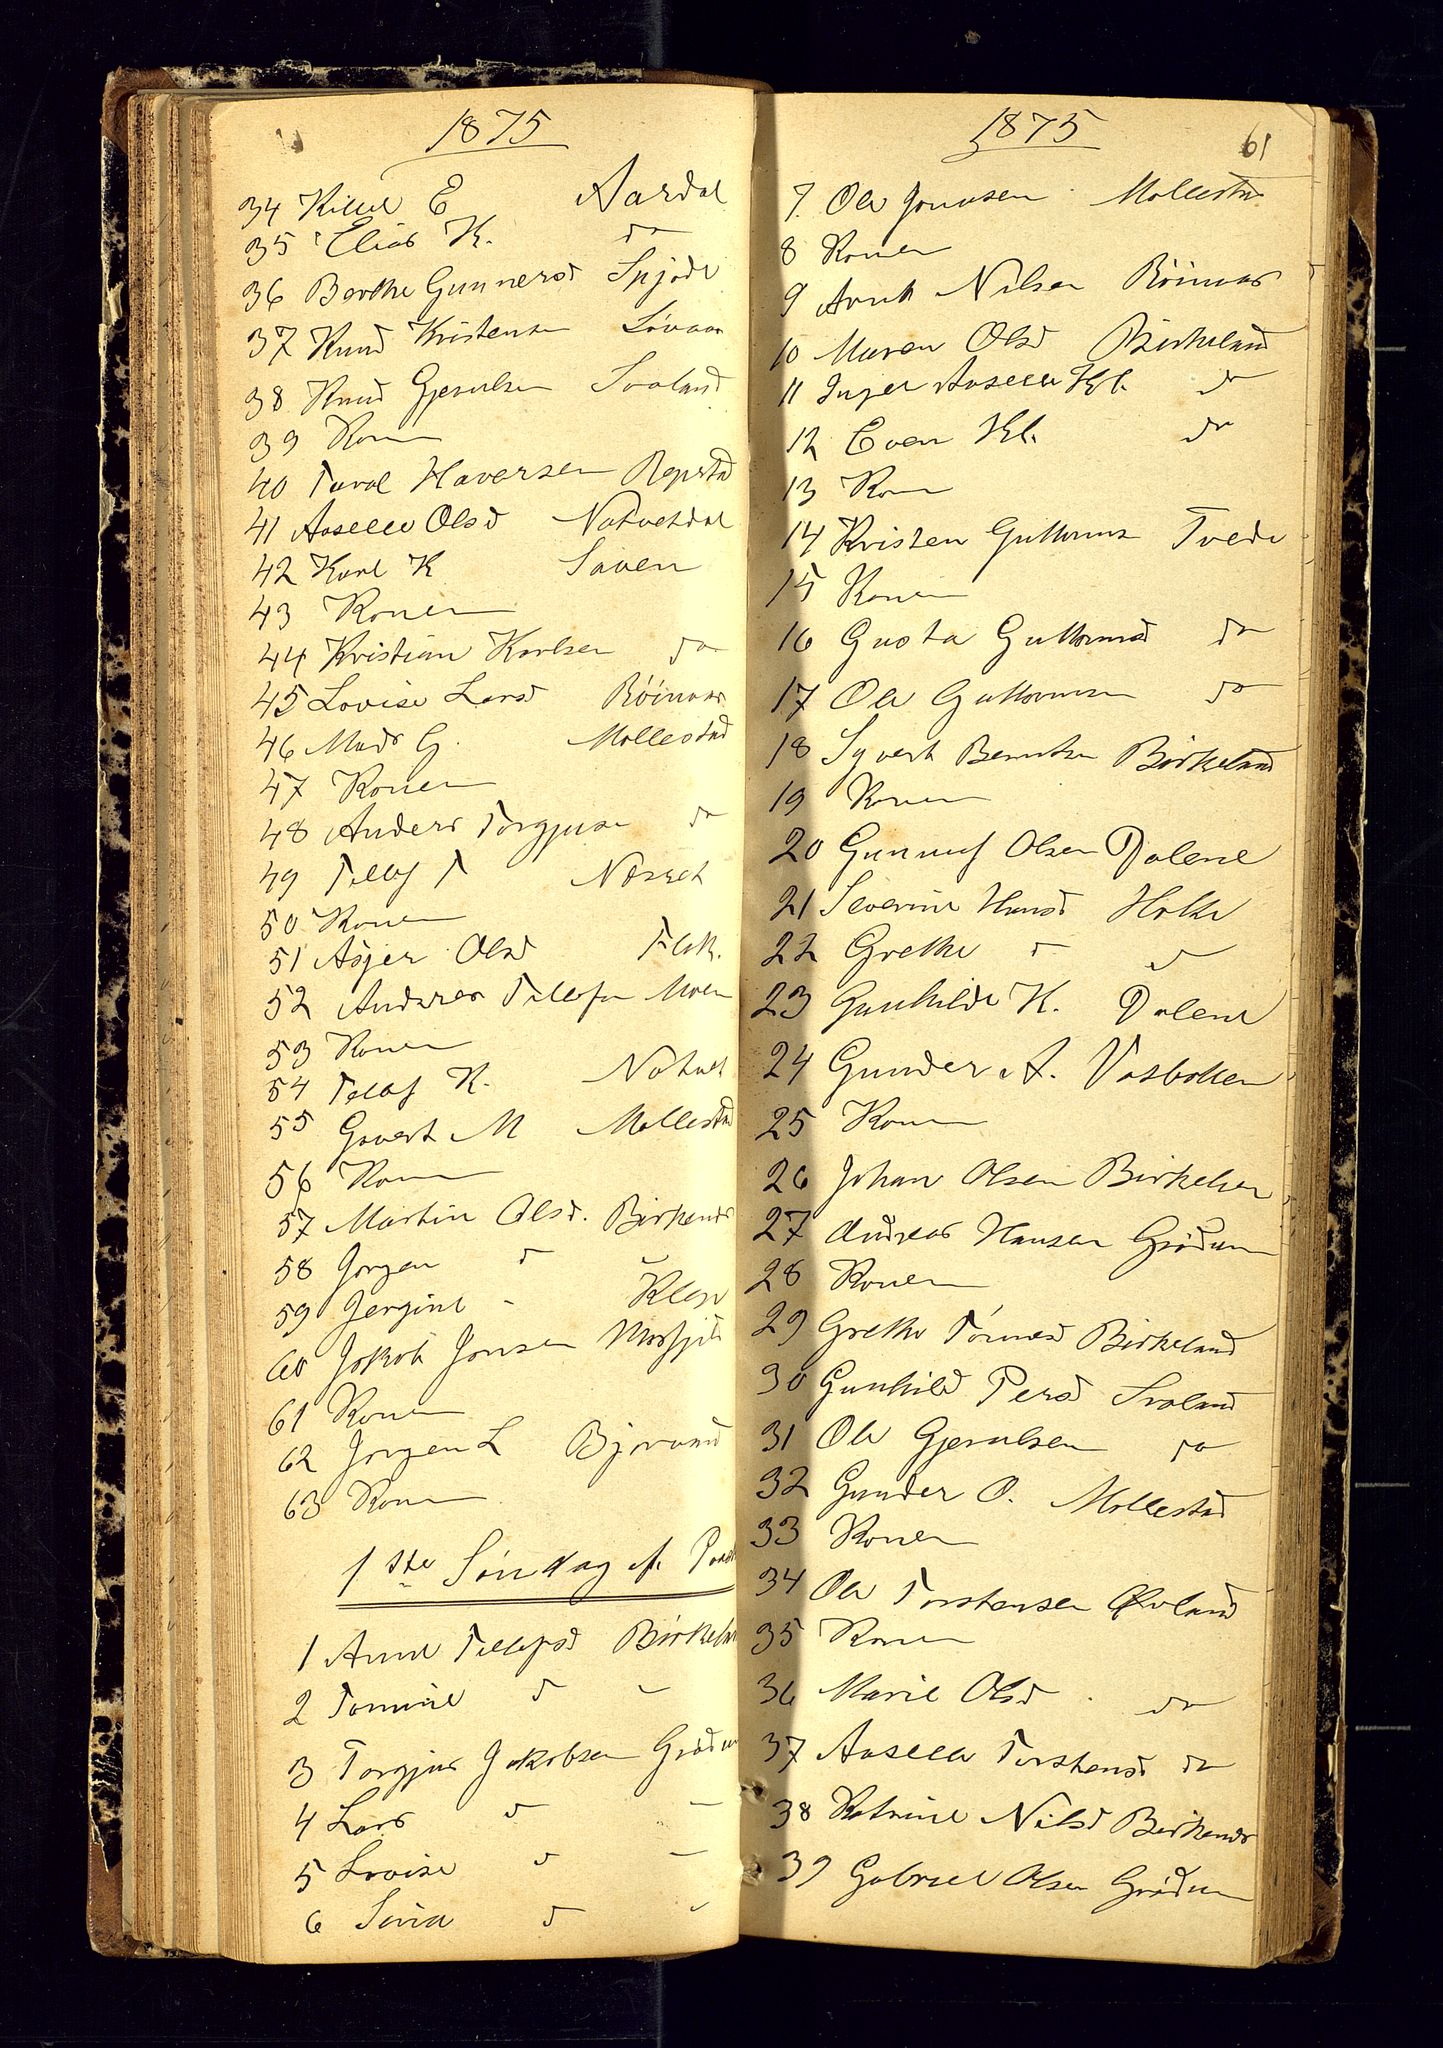 1875
34 Killel E Aardal
35 Elias K. do
36 Berthe Gunnersd Spjode
37 Knud Kristensen Løvaas
38 Knud Gjerulsen Svaland
39 Konen
40 Taral Haversen Repstad
41 Aasille Olsd Natvetdal
42 Karl K Søven
43 Konen
44 Kristian Karlsen do
45 Lovise Larsd Røinaas
46 Mads G. Mollestad
47 Konen
48 Anders Torgjusen do
49 Tellef T Næset
50 Konen
51 Asjer Olsd Flak.
52 Andreas Tellefsen Moen
53 Konen
54 Tellef K. Natvet
55 Govert M Mollestad
56 Konen
57 Martin Olsd. Birkenes
58 Jørgen d
59 Jørgine - Klep
60 Jakob Jonsen
61 Konen
62 Jørgen L Bjorvand
63 Konen
1ste Søndag ef. Paaske
1 Anne Tellefsd Birkeland
2 Tomine d -
3 Torgjus Jakobsen Grødum
4 Lars d -
5 Lovise d -
6 Sivia d -
1875
61
7. Ole Jonassen Mollestad
8 Konen
9 Arnt Nilsen Røinaas
10 Maren Olsd Birkeland
11 Inger Aaselle Kl. do
12 Even Kl. do
13 Konen
14 Kristen Guttorms Tvede
15 Konen
16 Gusta Guttormsd do
17 Ole Guttormsen do
18 Syvert Berntsen Birkeland
19 Konen
20 Gunnuf Olsen Dalene
21 Severine Hansd Holte
22 Grethe d d
23 Gunhilde K. Dalene
24 Gunder A. Vasbotten
25 Konen
26 Johan Olsen Birkeland
27 Andreas Hansen Grødum
28 Konen
29 Grethe Tørresd Birkeland
30 Gunhild Persd Svaland
31 Ole Gjerulsen do
32 Gunder O. Mollestad
33 Konen
34 Ole Torstensen Øvland
35 Konen
36 Marie Olsd do
37 Aaselle Torstensd do
38 Katrine Nilsd Birkenes
39 Gabriel Olsen Grødum